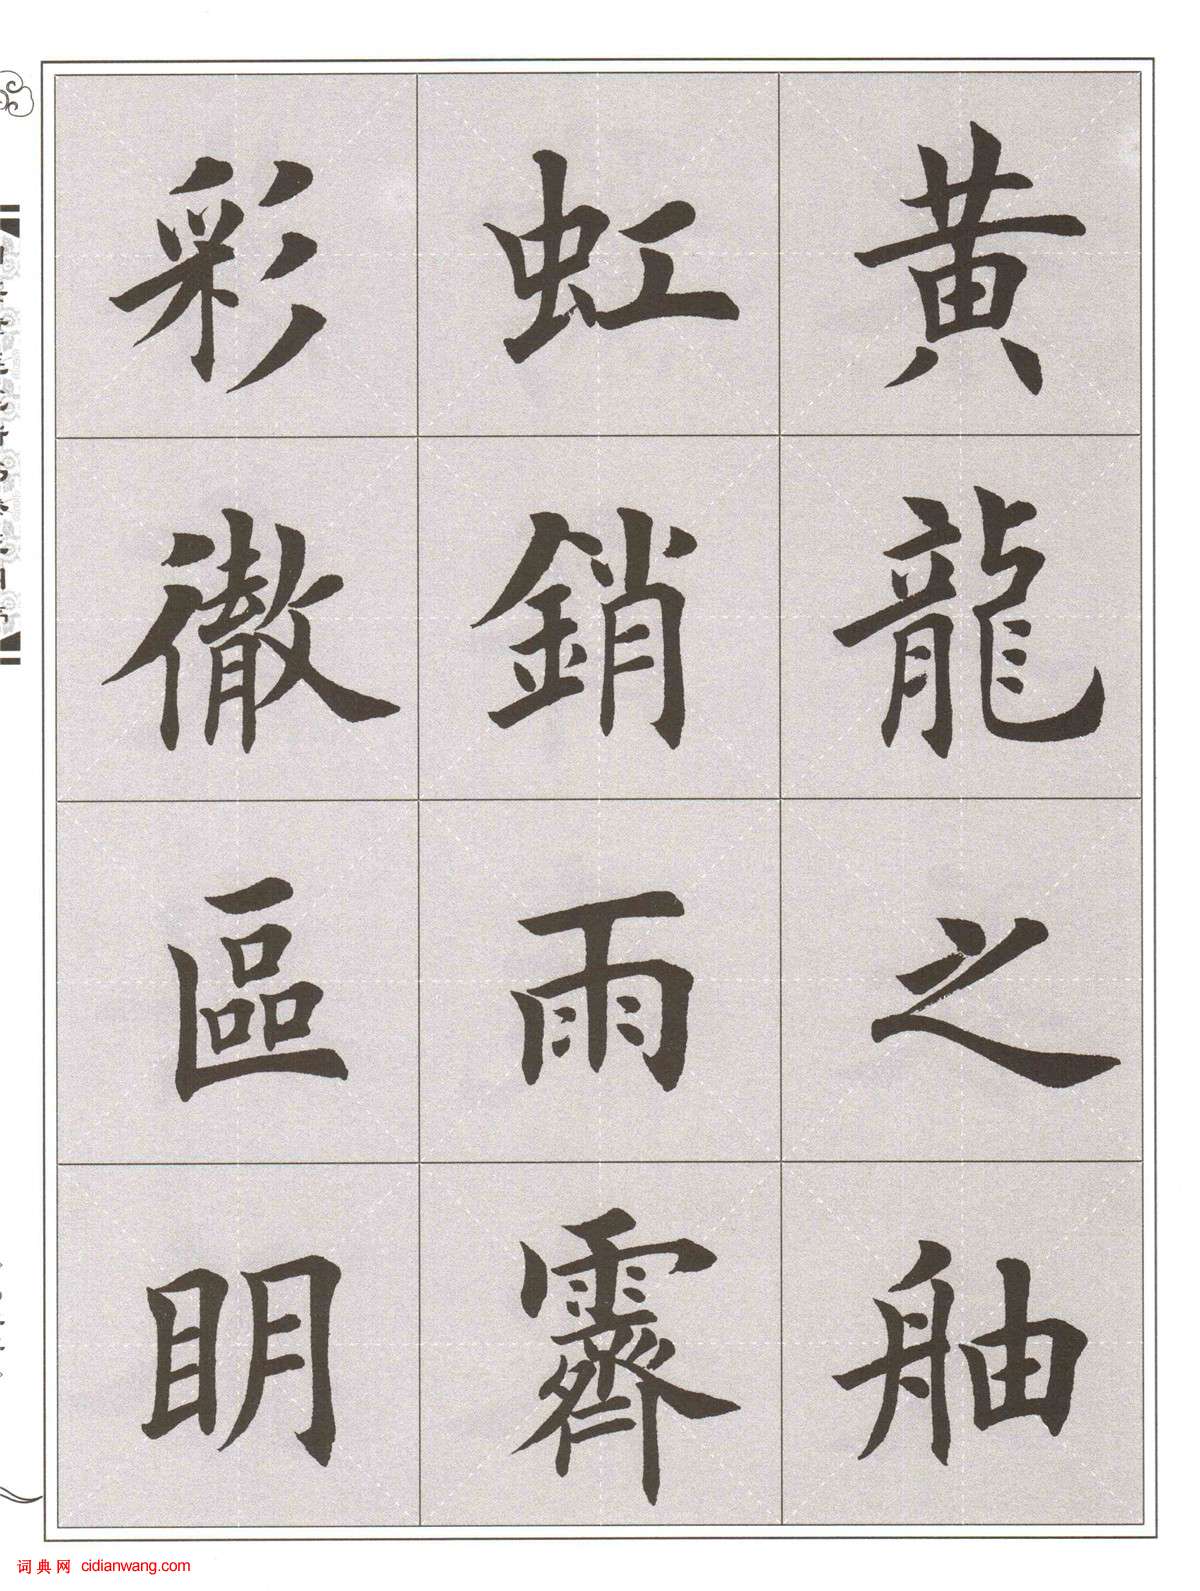 黄龍之舳
虹銷雨霽
彩徹區眀
词典网 cidianwang.com